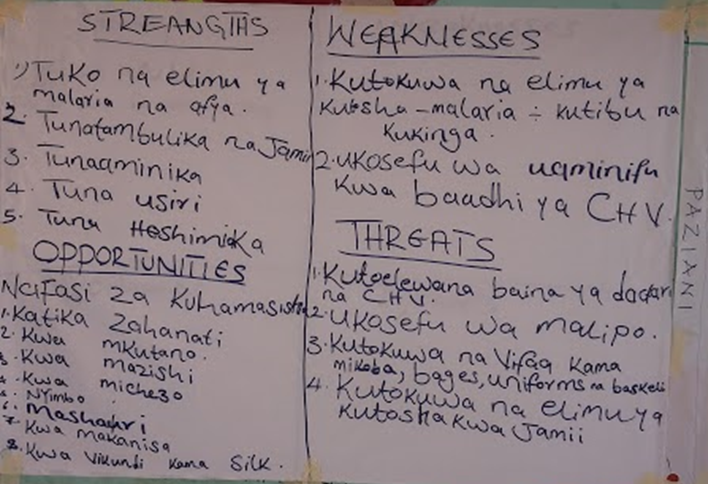 STREANGTHS
1) Tuko na elimu ya
malaria na afya.
2. Tunatambulika na Jamii
3. Tunaaminika
4. Tuna usiri
5. Tuna Heshimika
OPPORTUNITIES
Nafasi za Kuhamasisha
1. Katika Zahanati
2. Kwa mkutano.
3. Kwa mazishi
4. Kwa michezo
5. Nyimbo
6. Mashairi
7. Kwa makanisa
8. Kwa vikundi kama Silk.
WEAKNESSES
1. Kutokuwa na elimu ya
kutosha - malaria ÷ kutibu na
Kukinga.
2. Ukosefu wa uaminifu
Kwa baadhi ya CHV.
THREATS
1. Kutoelewana baina ya daqtari
na CHV.
2. Ukosefu wa malipo.
3. Kutokuwa na Vifaa Kama
mikoba, bages, uniforms na baskeli
4. Kutokuwa na elimu ya
Kutosha Kwa Jamii
PAZIANI